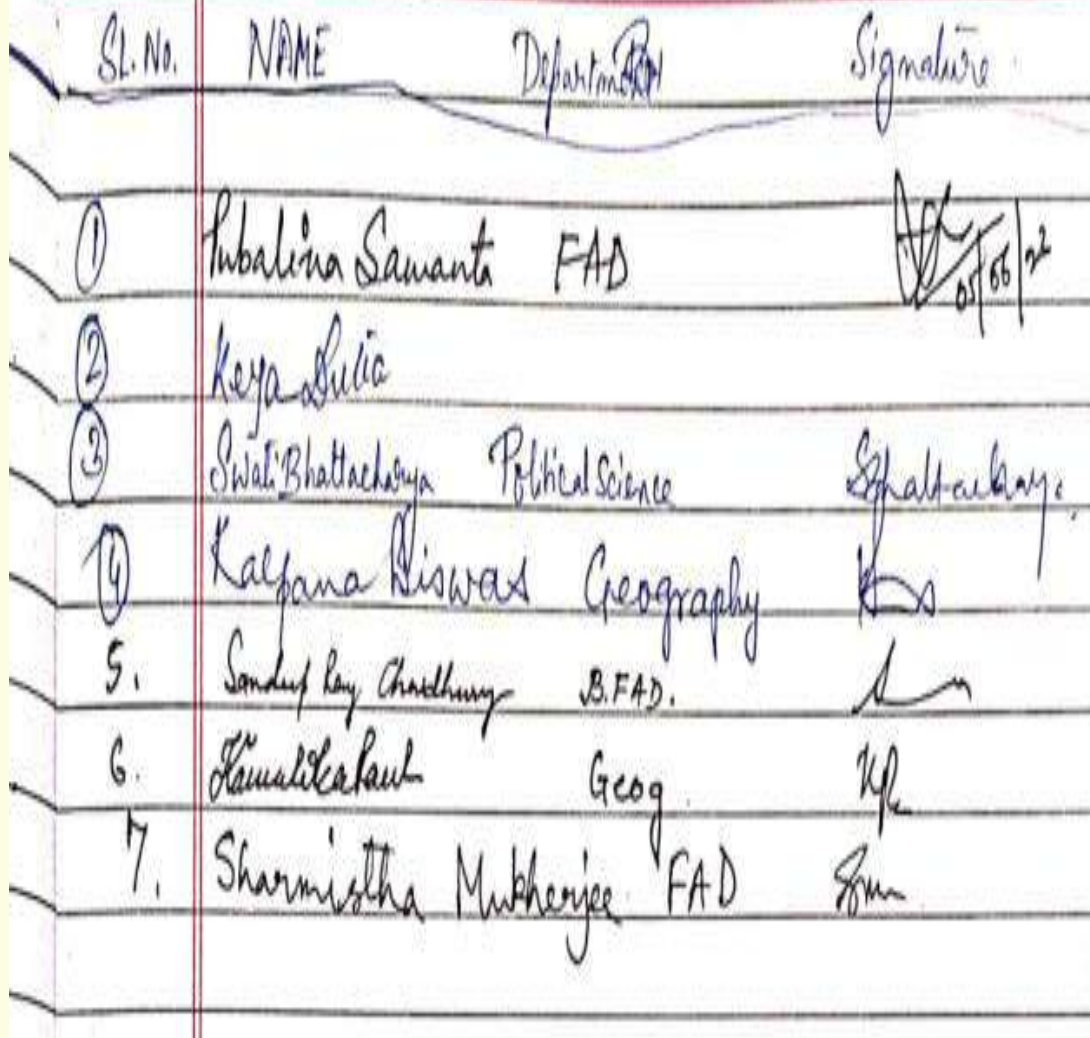 SL. No. NAME Department Signature
1 Pubalina Samanta FAD 05/06/22
2 Keya Dulia
3 Swati Bhattacharya Political Science SBhattacharya
4 Kalpana Biswas Geography
5. Sandup Ray Chaudhury B.FAD.
6. Kamalika Paul Geog. KP
7. Sharmistha Mukherjee FAD Sm